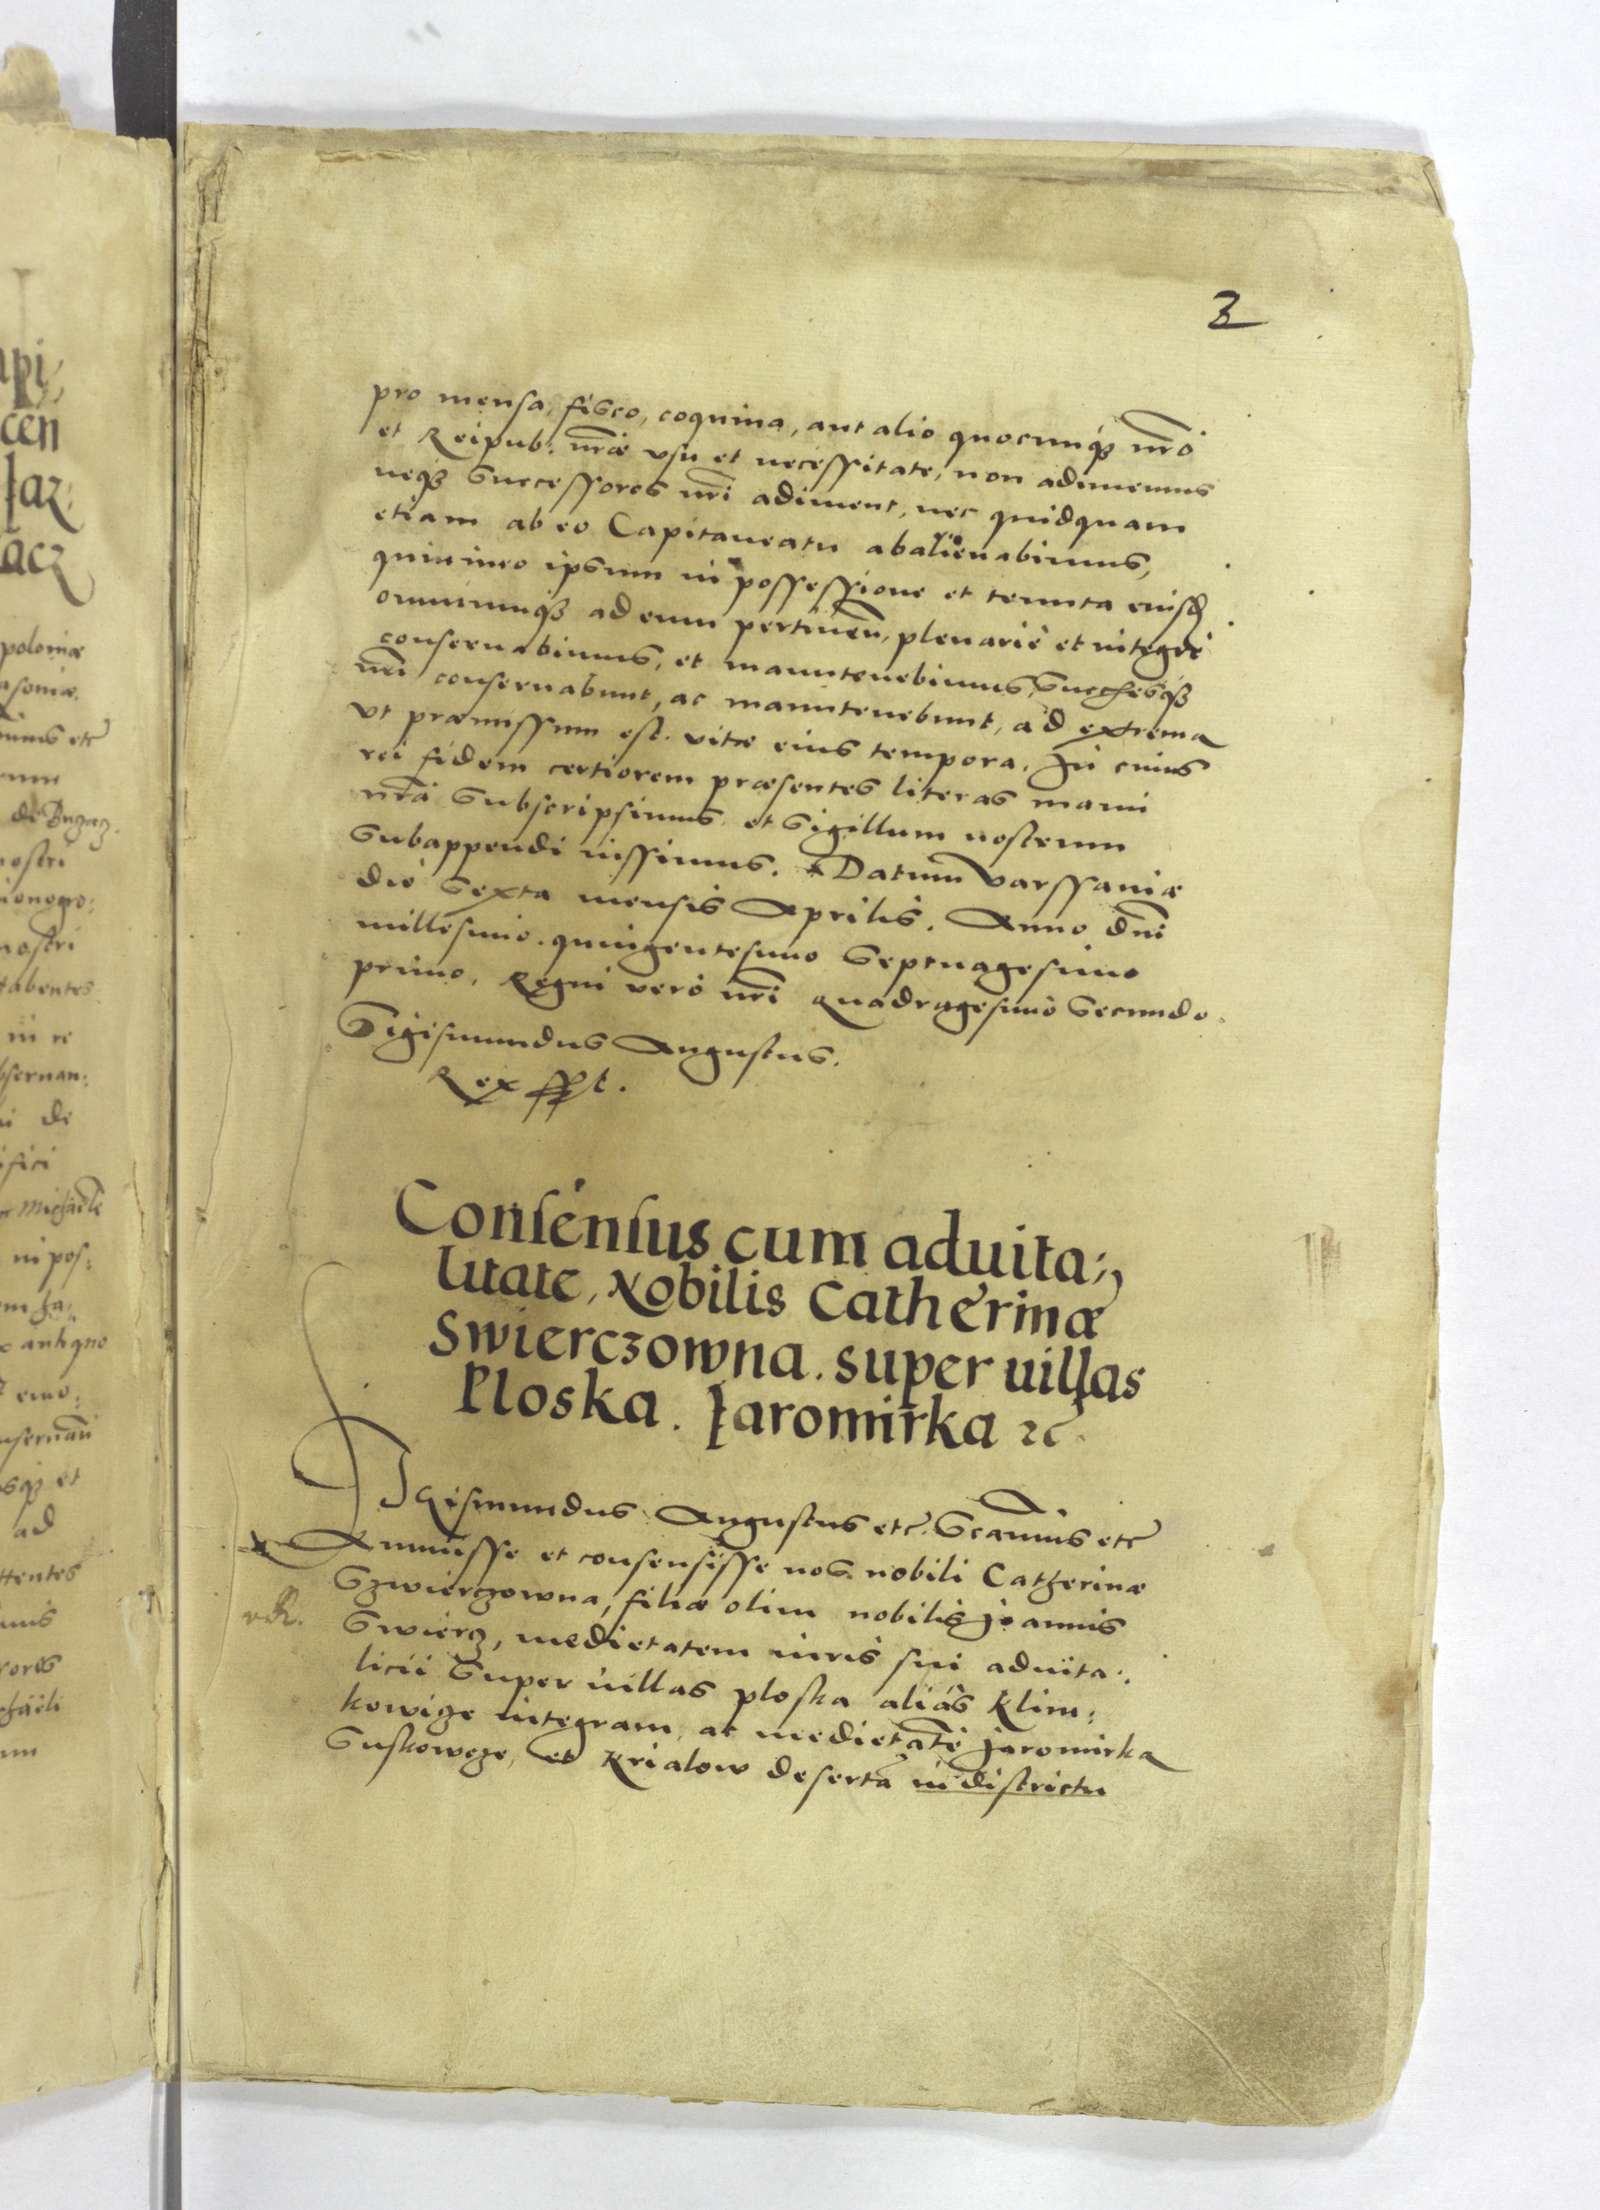 2
pro mensa, fisco, coquina, aut alio quocunq₃ nr̃o
et Reipub: nr̃æ vsu et necessitate, non adimemus
neq₃ Successores nr̃i adiment, nec quidquam
etiam ab eo Capitaneatu abalienabimus,
quinimo ipsum in possessione et tenuta eiusd
omniumq₃ ad eum pertineñ, plenariè et integrè
conseruabimus, et manutenebimus,
nr̃i conseruabunt, ac manutenebunt, ad extrema
vt præmissum est. vitæ eius tempora. In cuius
rei fidem certiorem præsentes literas manu
nr̃a Subscripsimus et Sigillum nostrum
Subappendi iussimus. Datum Varssauiæ
die Sexta mensis Aprilis. Anno dñi
millesimo. quingentesimo Septuagesimo
primo, Regni verò nr̃i quadragesimo Secundo.
Sigismundus Augustus.
Rex sspt.
Consensus cum aduita:
litate, Nobilis Catherinæ
Swierczowna. super uillas
Ploska. Jaromirka etc
SIgismundus Augustus etc. etc
Annuisse et consensisse nos nobili Catherinæ
Szwierczowna, filiæ olim nobilis Joannis
Swiercz, medietatem iuris sui aduita:
licii Super uillas ploska aliàs Klim:
kowicze integram, ac medietatẽ Jaromirka
Suskowcze, et Krialow deserta in districtu